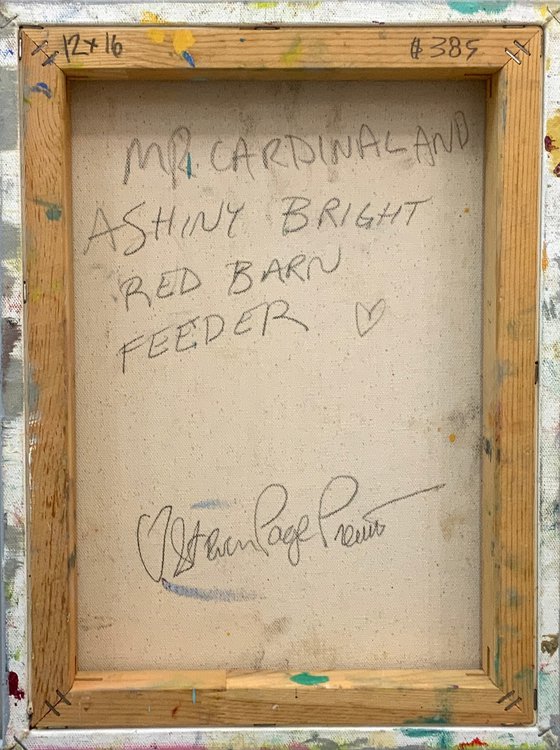 12x16
$385
MR. CARDINAL AND
A SHINY BRIGHT
RED BARN
FEEDER ♡
♡ Steven Page Prewitt